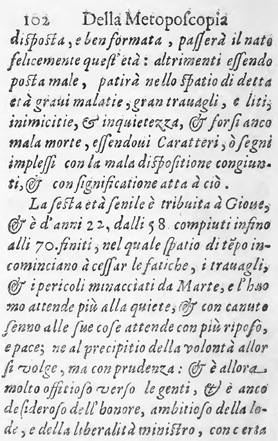 102 Della Metoposcopia
disposta, e ben formata, passerà il nato
felicemente quest'età: altrimenti essendo
posta male, patirà nello spatio di detta
età graui malatie, gran trauagli, e liti,
inimicitie, & inquietezza, & forsi anco
mala morte, essendoui Caratteri, ò segni
implessi con la mala dispositione congiun-
ti, & con significatione atta à ciò.
La sesta età senile è tribuita à Gioue,
& è d'anni 22, dalli 58 compiuti infino
alli 70. finiti, nel quale spatio di tẽpo in-
cominciano à cessar le fatiche, i trauagli,
& i pericoli minacciati da Marte, e l'huo
mo attende più alla quiete, & con canuto
senno alle sue cose attende con più riposo,
e pace; ne al precipitio della volontà allor
si volge, ma con prudenza: & è allora
molto offitioso verso le genti, & è anco
desideroso dell'honore, ambitioso della lo-
de, e della liberalità ministro, con certa